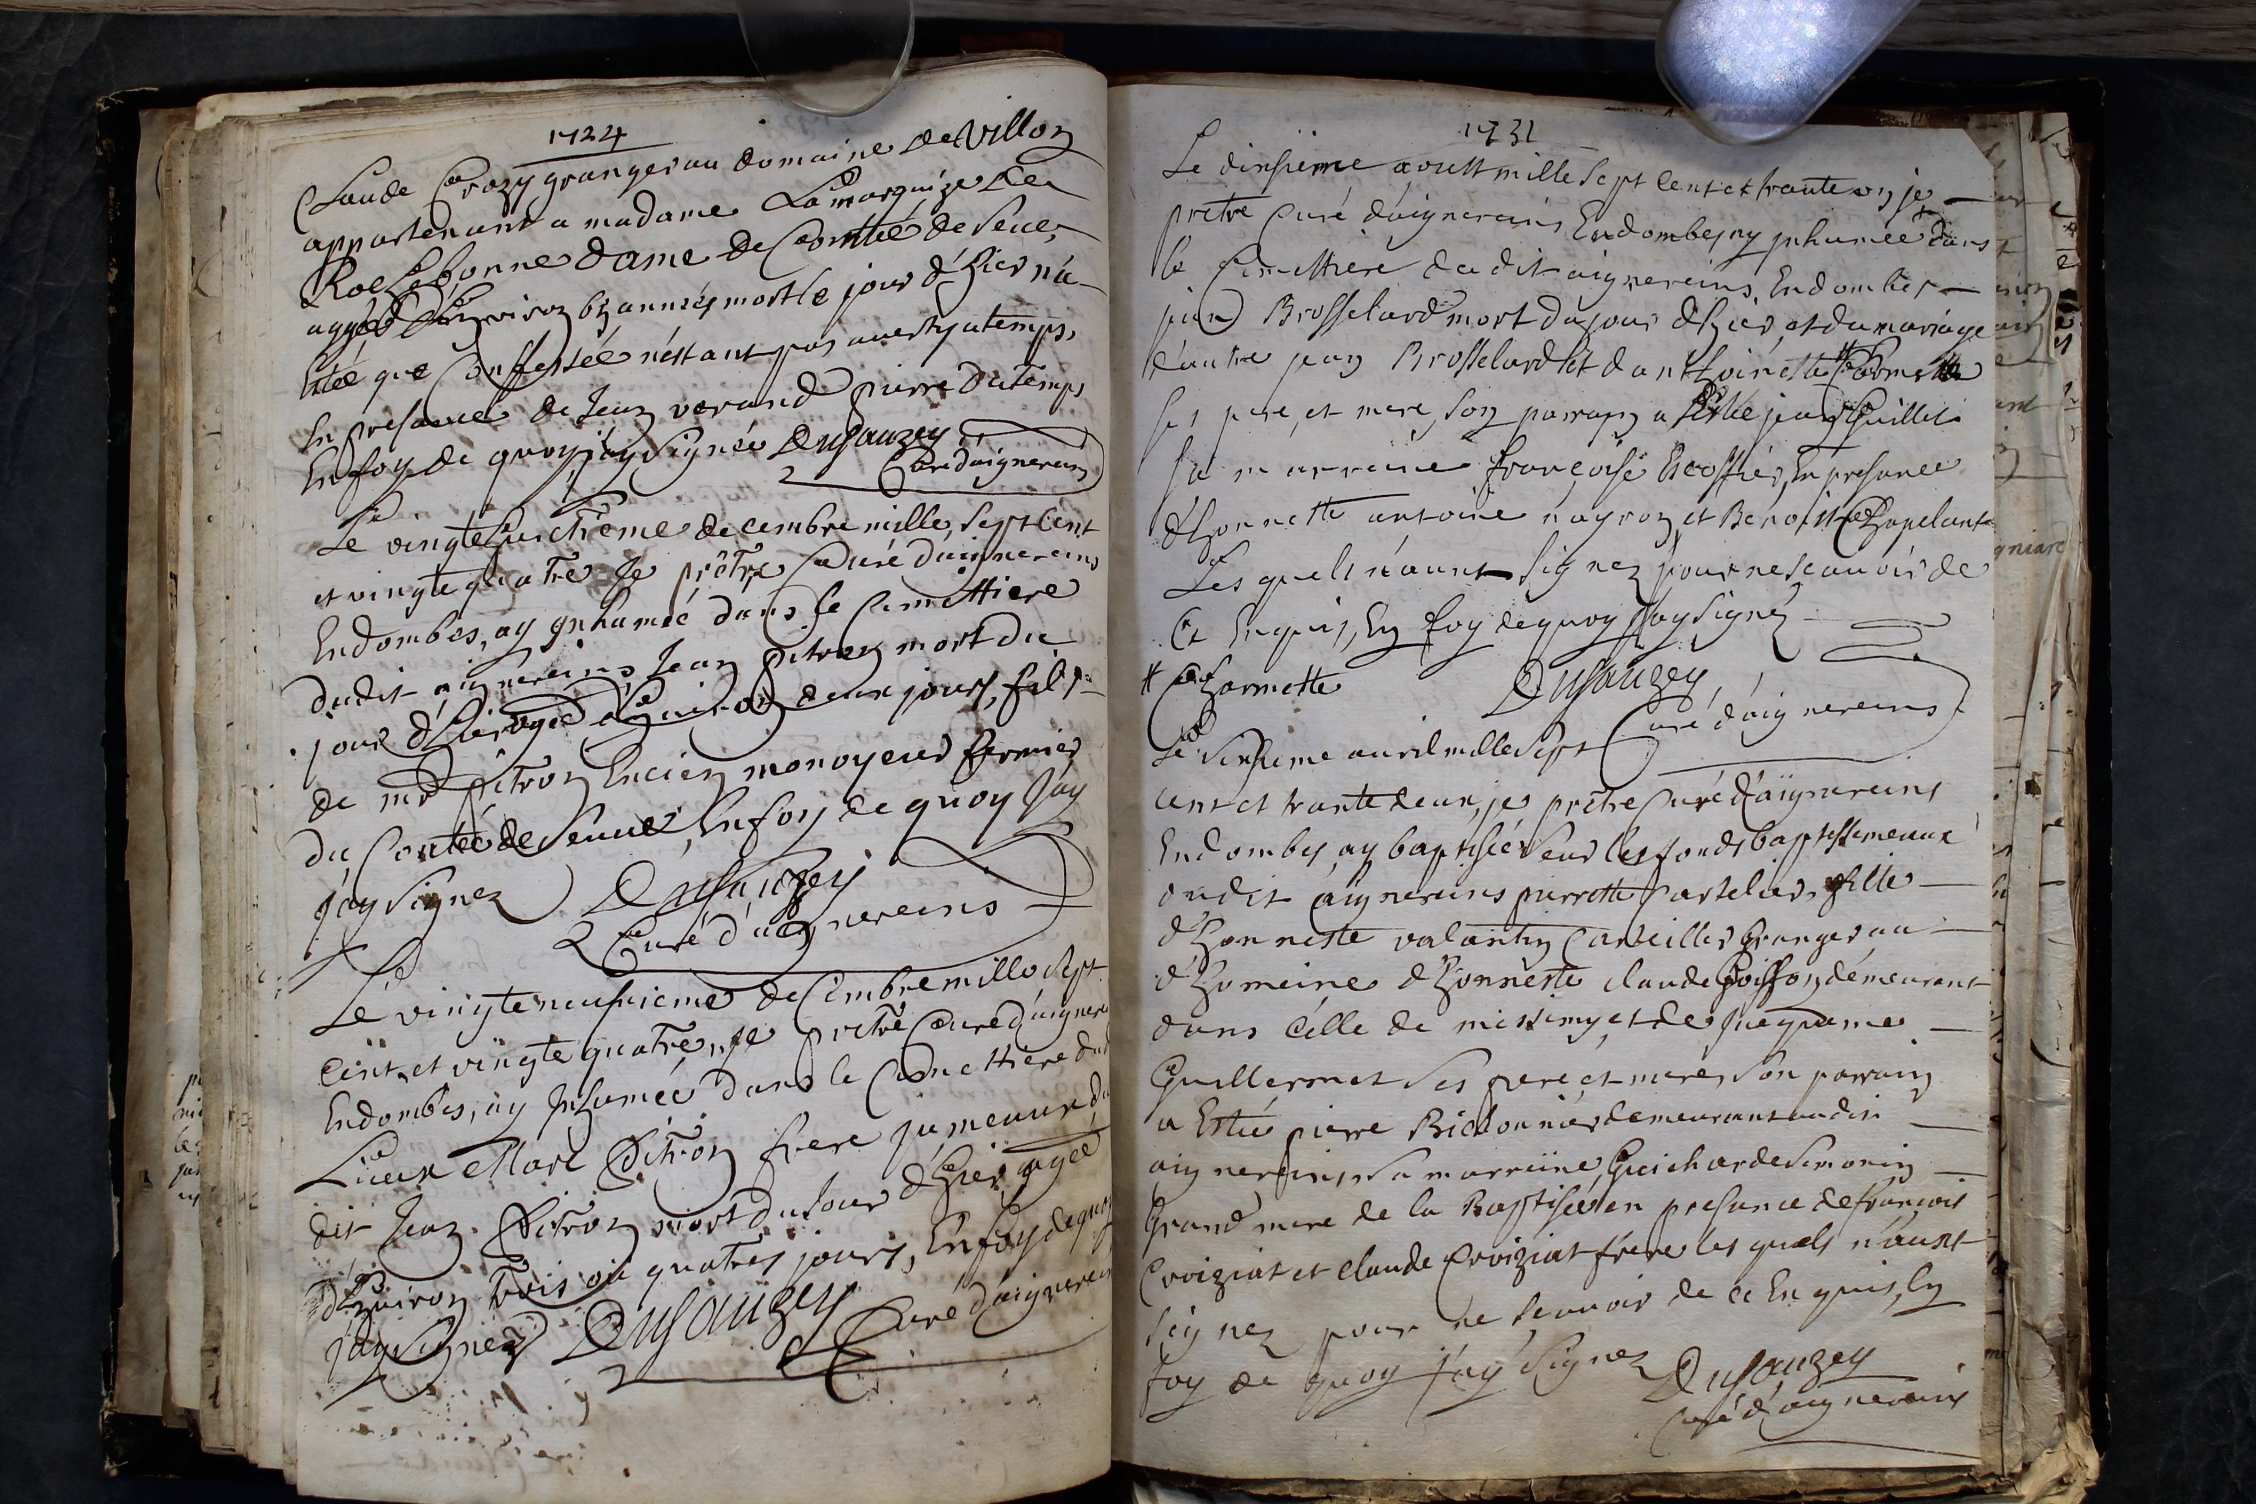 1724
Claude Crozy granger au domaine de Villon
appartenant a madame La marquize de
Rochebonne dame de Comtté de Seue,
aggéé d'Environ années mort le jour d'hier n'a
Estéé que Conffesséé n'éstant pas auerty atemps,
En presance de Jean verand pierre Dutemps
En foy de quoy j'áy Signéé Dusauzey
Curé daignereins
Le vingte huictiéme decembre mille, Sept Cent
et vingte quatre Je prêtre Curé daignereins
En dombes, ay jnhuméé dans le Cimettiere
dudit aignereins Jean pitron mort du
jour d'hier agéé d'Enuiron deux jours, fils
de mr pitron Encien monoyeur fermier
du Contéé de Seuue, En foy de quoy J'ay
J'ay Signez Dusauzey
Curé d'aignereins
Le vingte neufuieme deCembre mille Sept
Cent et vingte quatre, Je prêtré Curé d'aignere
En dombes, ay Jnhuméé dans le Cimettiere dud
Lieux Marc Pitron frere jumeaux du
dit Jean Pitron mort du Jour d'hier agéé
d'Enuiron trois ou quatres jours, En foy de quoy
J'ay Signez Dusauzey Curé d'aignereins
1731
Le dixsieme aoust mille Sept Cent et trante vn je
prêtre Curé d'áignereins En dombes ay jnhuméé dans
le Cimettiere du dit aignereins En dombes
jean Brosselard mort du jour d'hier, et du mariage
d'autre jean Brosselard et d'anthoinette #
Ses pere, et mere, Son parrain a Estéé jean Guillet
Sa marraine françoise En presance
d'honnette antoine nayron et Benoist Chapelant
Les quels n'áunt Signez pour ne Scauoir de
Ce Enquis, En foy de quoy J'ay Signéz
# Charmette Dusauzey
Curé d'aignereins
Le Sixsieme auril mille Sept
Cent et trante deux, je prêtre Curé d'áignereins
En dombes ay baptiséé Seur les fonds baptissmeaux
dudit áignereins pierrette Cartelier fille
d'honneste valantin Carteiller Granger au
d'homeine d'honneste claude Poisson démeurant
dans Célle de missimy, et de Jacqueme
Guillermet Ses pere, et mere, Son parrain
a Estéé pierre Bichonnier demeurant audit
aignereins Sa marraine, Guicharde Simonin
Grand mere de la Baptiséé en presance de françois
Croiziat et claude Croiziat frere les quels n'áunt
Signez pour ne Scauoir de ce Enquis, En
foy de quoy J'áy Signez Dusauzey
Curé d'aignereins